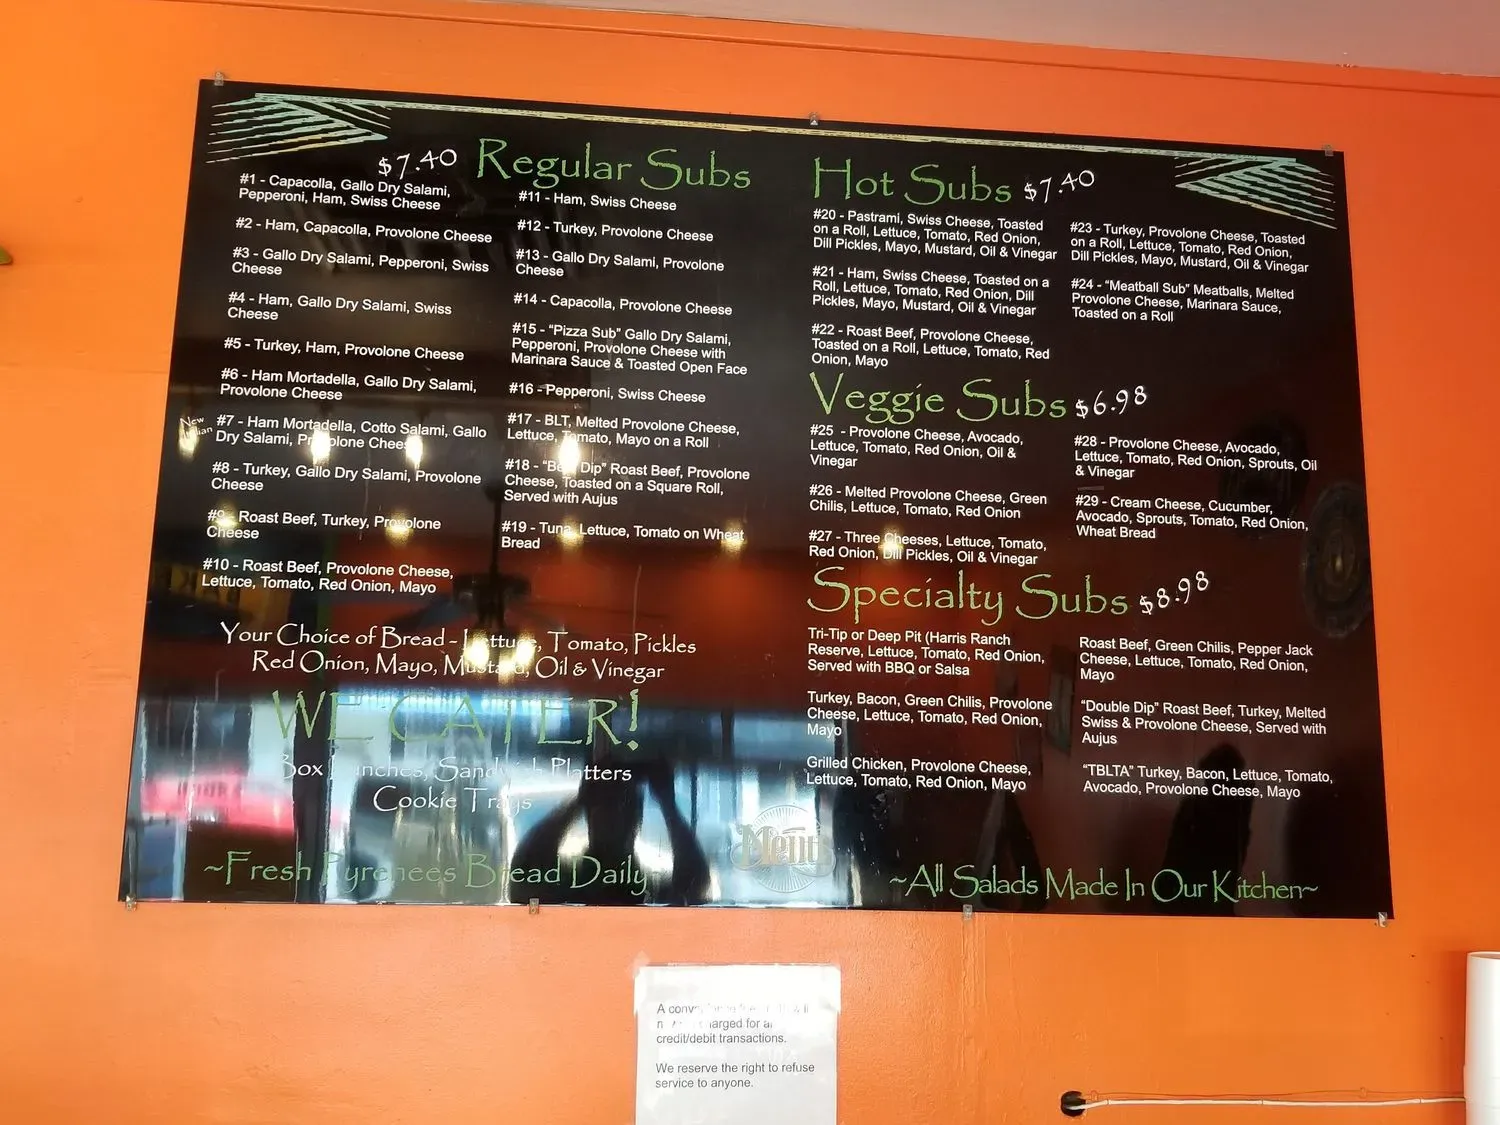 Regular Subs
$7.40
#1 - Capacolla, Gallo Dry Salami,
Pepperoni, Ham, Swiss Cheese
#2 - Ham, Capacolla, Provolone Cheese
#3 - Gallo Dry Salami, Pepperoni, Swiss
Cheese
#4 - Ham, Gallo Dry Salami, Swiss
Cheese
#5 - Turkey, Ham, Provolone Cheese
#6 - Ham Mortadella, Gallo Dry Salami,
Provolone Cheese
New
#7 - Ham Mortadella, Cotto Salami, Gallo
Dry Salami, Provolone Cheese
#8 - Turkey, Gallo Dry Salami, Provolone
Cheese
#9 - Roast Beef, Turkey, Provolone
Cheese
#10 - Roast Beef, Provolone Cheese,
Lettuce, Tomato, Red Onion, Mayo
#11 - Ham, Swiss Cheese
#12 - Turkey, Provolone Cheese
#13 - Gallo Dry Salami, Provolone
Cheese
#14 - Capacolla, Provolone Cheese
#15 - “Pizza Sub” Gallo Dry Salami,
Pepperoni, Provolone Cheese with
Marinara Sauce & Toasted Open Face
#16 - Pepperoni, Swiss Cheese
#17 - BLT, Melted Provolone Cheese,
Lettuce, Tomato, Mayo on a Roll
#18 - “Beef Dip” Roast Beef, Provolone
Cheese, Toasted on a Square Roll,
Served with Aujus
#19 - Tuna, Lettuce, Tomato on Wheat
Bread
Your Choice of Bread - Lettuce, Tomato, Pickles
Red Onion, Mayo, Mustard, Oil & Vinegar
WE CATER!
Box Lunches, Sandwich Platters
Cookie Trays
~Fresh Pyrenees Bread Daily~
Hot Subs $7.40
#20 - Pastrami, Swiss Cheese, Toasted
on a Roll, Lettuce, Tomato, Red Onion,
Dill Pickles, Mayo, Mustard, Oil & Vinegar
#21 - Ham, Swiss Cheese, Toasted on a
Roll, Lettuce, Tomato, Red Onion, Dill
Pickles, Mayo, Mustard, Oil & Vinegar
#22 - Roast Beef, Provolone Cheese,
Toasted on a Roll, Lettuce, Tomato, Red
Onion, Mayo
#23 - Turkey, Provolone Cheese, Toasted
on a Roll, Lettuce, Tomato, Red Onion,
Dill Pickles, Mayo, Mustard, Oil & Vinegar
#24 - “Meatball Sub” Meatballs, Melted
Provolone Cheese, Marinara Sauce,
Toasted on a Roll
Veggie Subs $6.98
#25 - Provolone Cheese, Avocado,
Lettuce, Tomato, Red Onion, Oil &
Vinegar
#26 - Melted Provolone Cheese, Green
Chilis, Lettuce, Tomato, Red Onion
#27 - Three Cheeses, Lettuce, Tomato,
Red Onion, Dill Pickles, Oil & Vinegar
#28 - Provolone Cheese, Avocado,
Lettuce, Tomato, Red Onion, Sprouts, Oil
& Vinegar
#29 - Cream Cheese, Cucumber,
Avocado, Sprouts, Tomato, Red Onion,
Wheat Bread
Specialty Subs $8.98
Tri-Tip or Deep Pit (Harris Ranch
Reserve, Lettuce, Tomato, Red Onion,
Served with BBQ or Salsa
Turkey, Bacon, Green Chilis, Provolone
Cheese, Lettuce, Tomato, Red Onion,
Mayo
Grilled Chicken, Provolone Cheese,
Lettuce, Tomato, Red Onion, Mayo
Roast Beef, Green Chilis, Pepper Jack
Cheese, Lettuce, Tomato, Red Onion,
Mayo
“Double Dip” Roast Beef, Turkey, Melted
Swiss & Provolone Cheese, Served with
Aujus
“TBLTA” Turkey, Bacon, Lettuce, Tomato,
Avocado, Provolone Cheese, Mayo
~All Salads Made In Our Kitchen~
Menu
A
for
credit/debit transactions.
We reserve the right to refuse
service to anyone.